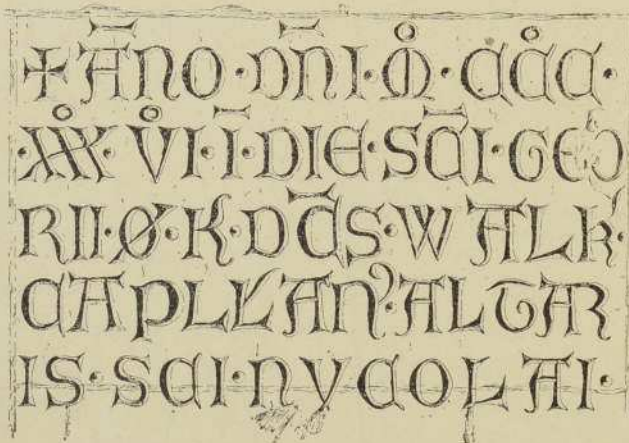 + ĀNO · DN̄I · M̊ · CC̊C ·
· XXX · V̊I · Ī · DIE · SC̄I · GEO
RII · Ø · K · DC̄S · WALK ·
CAPLLAN · ALTAR
IS · SCI · NYCOLAI ·